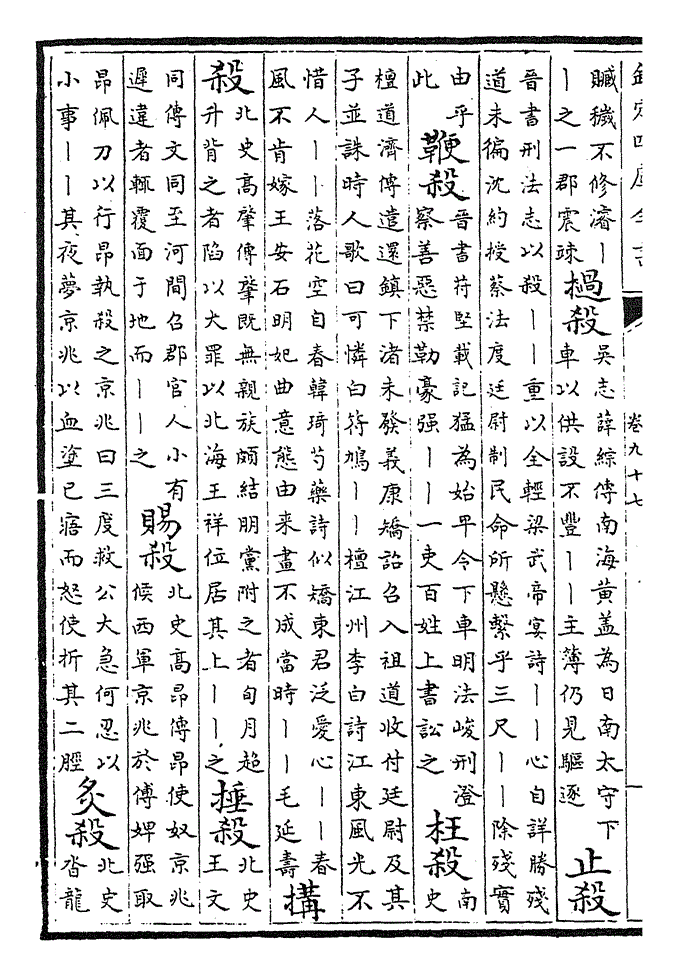 欽定四庫全書
卷九十七
贓穢不修濬丨
丨之一郡震竦
撾殺
吳志薛綜傳南海黃蓋為日南太守下
車以供設不豐丨丨主簿仍見驅逐
止殺
晉書刑法志以殺丨丨重以全輕梁武帝宴詩丨丨心自詳勝殘
道未徧沈約授蔡法度廷尉制民命所懸繫乎三尺丨丨除殘實
由乎
此
鞭殺
晉書苻堅載記猛為始平令下車明法峻刑澄
察善惡禁勒豪强丨丨一吏百姓上書訟之
枉殺
南
史
檀道濟傳遣還鎮下渚未發義康矯詔召入祖道收付廷尉及其
子並誅時人歌曰可憐白符鳩丨丨檀江州李白詩江東風光不
惜人丨丨落花空自春韓琦芍藥詩似矯東君泛愛心丨丨春
風不肯嫁王安石明妃曲意態由來畫不成當時丨丨毛延壽
搆
殺
北史高肇傳肇既無親族頗結朋黨附之者旬月超
升背之者陷以大罪以北海王祥位居其上丨丨之
捶殺
北史
王文
同傳文同至河間召郡官人小有
遲違者輒覆面于地而丨丨之
賜殺
北史高昂傳昂使奴京兆
候西軍京兆於傅婢强取
昂佩刀以行昂執殺之京兆曰三度救公大急何忍以
小事丨丨其夜夢京兆以血塗已寤而怒使折其二脛
炙殺
北史
沓龍